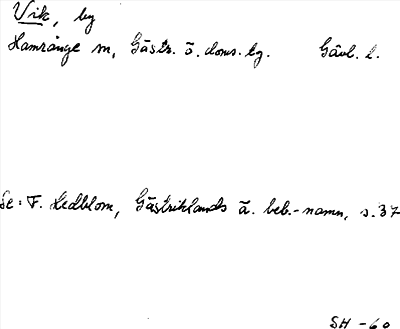 Vik, by
Hamrånge sn, Gästr. ö. doms.tg. Gävl. l.
Se: F. Hedblom, Gästriklands ä. beb.-namn, s. 37
SH -60